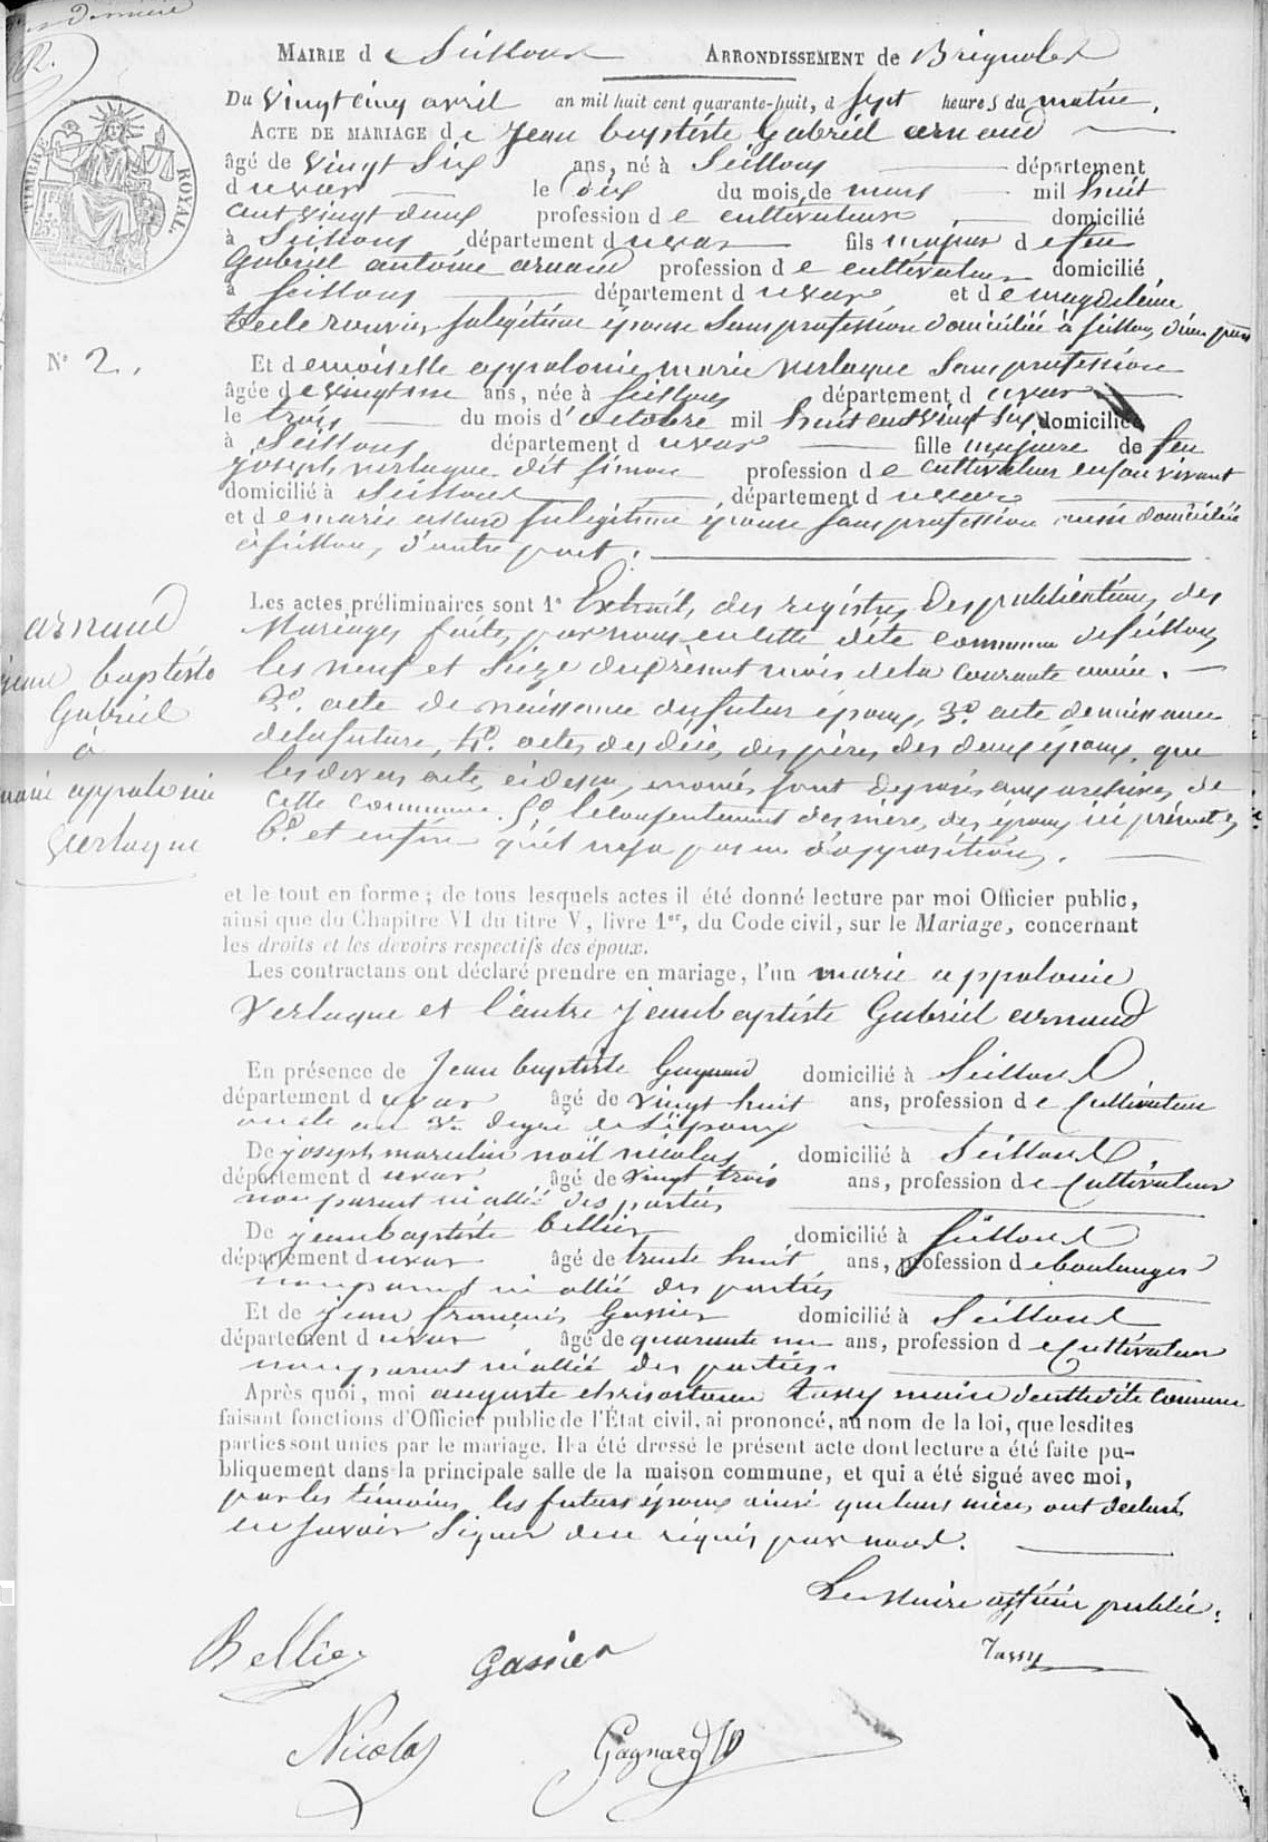 dernière
MAIRIE de Seillons ARRONDISSEMENT de Brignoles
Du vingt cinq avril an mil huit cent quarante-huit, à sept heures du matin,
ACTE DE MARIAGE de Jean baptiste Gabriel arnaud
TIMBRE ROYAL
âgé de vingt six ans, né à Seillons département
du var le dix du mois de mars mil huit
cent vingt deux profession de cultivateur domicilié
à Seillons département du var fils majeur de feu
Gabriel antoine arnaud profession de cultivateur domicilié
à Seillons département du var et de magdeleine
rouvier, sa légitime épouse sans profession domiciliée à Seillons, d'une part
N° 2.
Et demoiselle appolonie marie verlaque sans profession
âgée de vingt un ans, née à Seillons département du var
le trois du mois d'octobre mil huit cent vingt six domiciliée
à Seillons département du var fille majeure de feu
joseph verlaque dit simon profession de cultivateur en son vivant
domicilié à Seillons département du var
et de marie sa légitime épouse sans profession aussi domiciliée
à Seillons, d'autre part.
Les actes préliminaires sont 1° Extraits des registres des publications des
Mariages faites par nous en cette dite commune de Seillons
les neuf et seize du présent mois de la courante année.
2°. acte de naissance du futur époux, 3°. acte de naissance
de la future, 4°. actes des décès des pères des deux époux, que
les divers actes ci dessus énoncés sont déposés aux archives de
cette commune. 5°. le consentement des mères des époux ici présentes
6°. et enfin qu'il n'y a pas eu d'oppositions.
arnaud
jean baptiste
Gabriel
à
marie appolonie
verlaque
et le tout en forme ; de tous lesquels actes il été donné lecture par moi Officier public,
ainsi que du Chapitre VI du titre V, livre 1er, du Code civil, sur le Mariage, concernant
les droits et les devoirs respectifs des époux.
Les contractans ont déclaré prendre en mariage, l'un marie appolonie
verlaque et l'autre jean baptiste Gabriel arnaud
En présence de Jean baptiste Gagnard domicilié à Seillons
département du var âgé de vingt huit ans, profession de Cultivateur
oncle au 3e degré de l'époux
De joseph marcelin noël nicolas domicilié à Seillons
département du var âgé de vingt trois ans, profession de Cultivateur
non parent ni allié des parties
De jean baptiste bellier domicilié à Seillons
département du var âgé de trente huit ans, profession de boulanger
non parent ni allié des parties
Et de jean françois Gassier domicilié à Seillons
département du var âgé de quarante un ans, profession de Cultivateur
non parent ni allié des parties
Après quoi, moi auguste chrisostome tassy maire de cette dite commune
faisant fonctions d'Officier public de l'État civil, ai prononcé, au nom de la loi, que lesdites
parties sont unies par le mariage. Il a été dressé le présent acte dont lecture a été faite pu-
bliquement dans la principale salle de la maison commune, et qui a été signé avec moi,
par les témoins, les futurs époux ainsi que leurs mères ont déclaré
ne savoir signer de ce requis par nous.
Le Maire officier public.
Bellier Gassier Tassy
Nicolas Gagnard